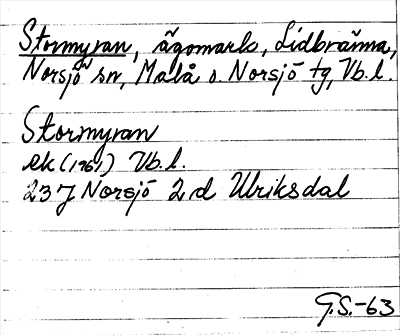 Stormyran, ägomark, Lidbränna,
Norsjö sn, Malå o. Norsjö tg, Vb.l.
Stormyran
ek (1961) Vb.l.
23 J Norsjö 2 d Ulriksdal
G.S.-63